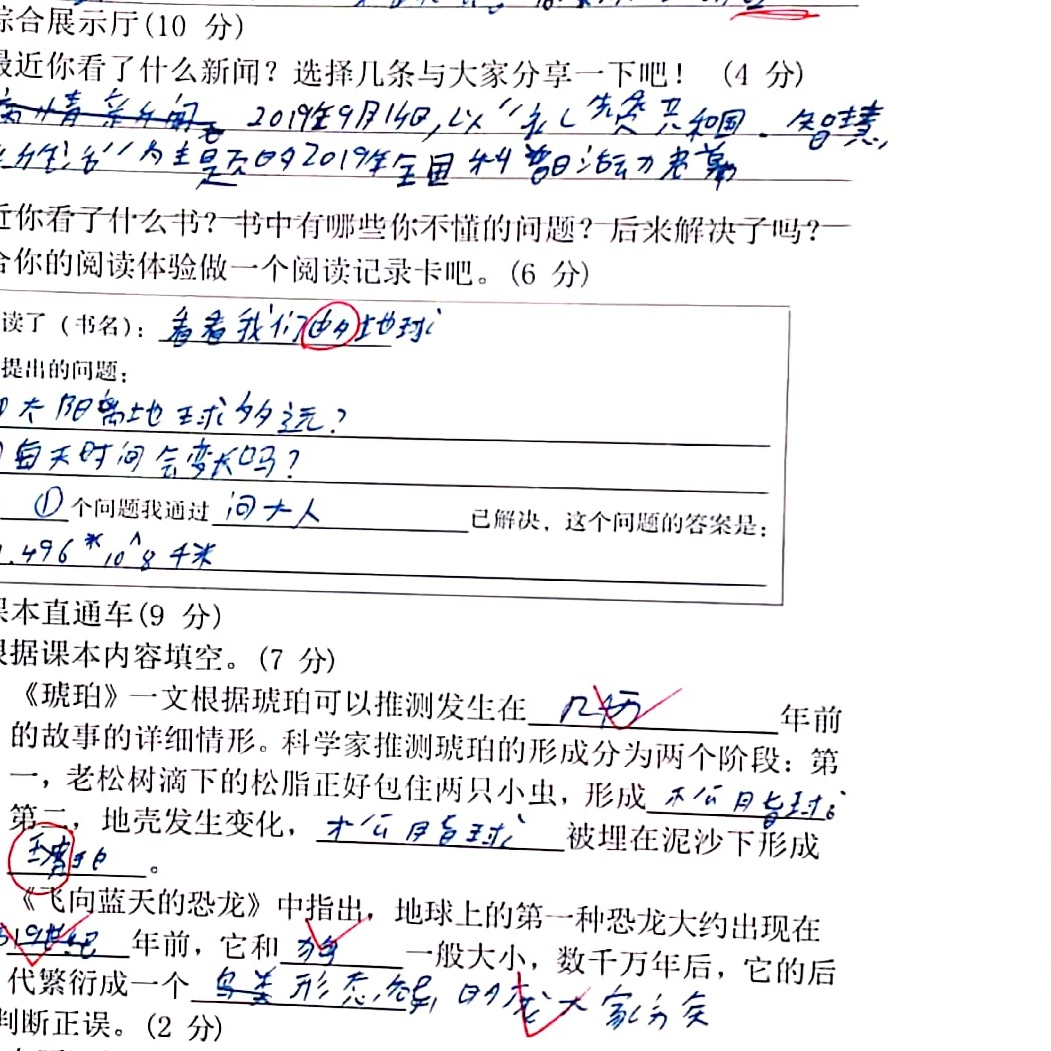 综合展示厅(10 分)
最近你看了什么新闻？选择几条与大家分享一下吧！ (4 分)
2019年9月14日,以“礼赞共和国、智慧
生活”为主题的2019年全国科普日活动启幕
近你看了什么书？书中有哪些你不懂的问题？后来解决了吗？
合你的阅读体验做一个阅读记录卡吧。(6 分)
读了（书名）：看看我们的地球
提出的问题：
太阳离地球多远？
每天时间会变长吗？
① 个问题我通过 问大人 已解决，这个问题的答案是：
1.496*10^8千米
课本直通车(9 分)
根据课本内容填空。(7 分)
《琥珀》一文根据琥珀可以推测发生在 几千万 年前
的故事的详细情形。科学家推测琥珀的形成分为两个阶段：第
一，老松树滴下的松脂正好包住两只小虫，形成 松脂球
第二，地壳发生变化， 松脂球 被埋在泥沙下形成
。
《飞向蓝天的恐龙》中指出，地球上的第一种恐龙大约出现在
年前，它和 狗 一般大小，数千万年后，它的后
代繁衍成一个 形态 的庞大家族
判断正误。(2 分)